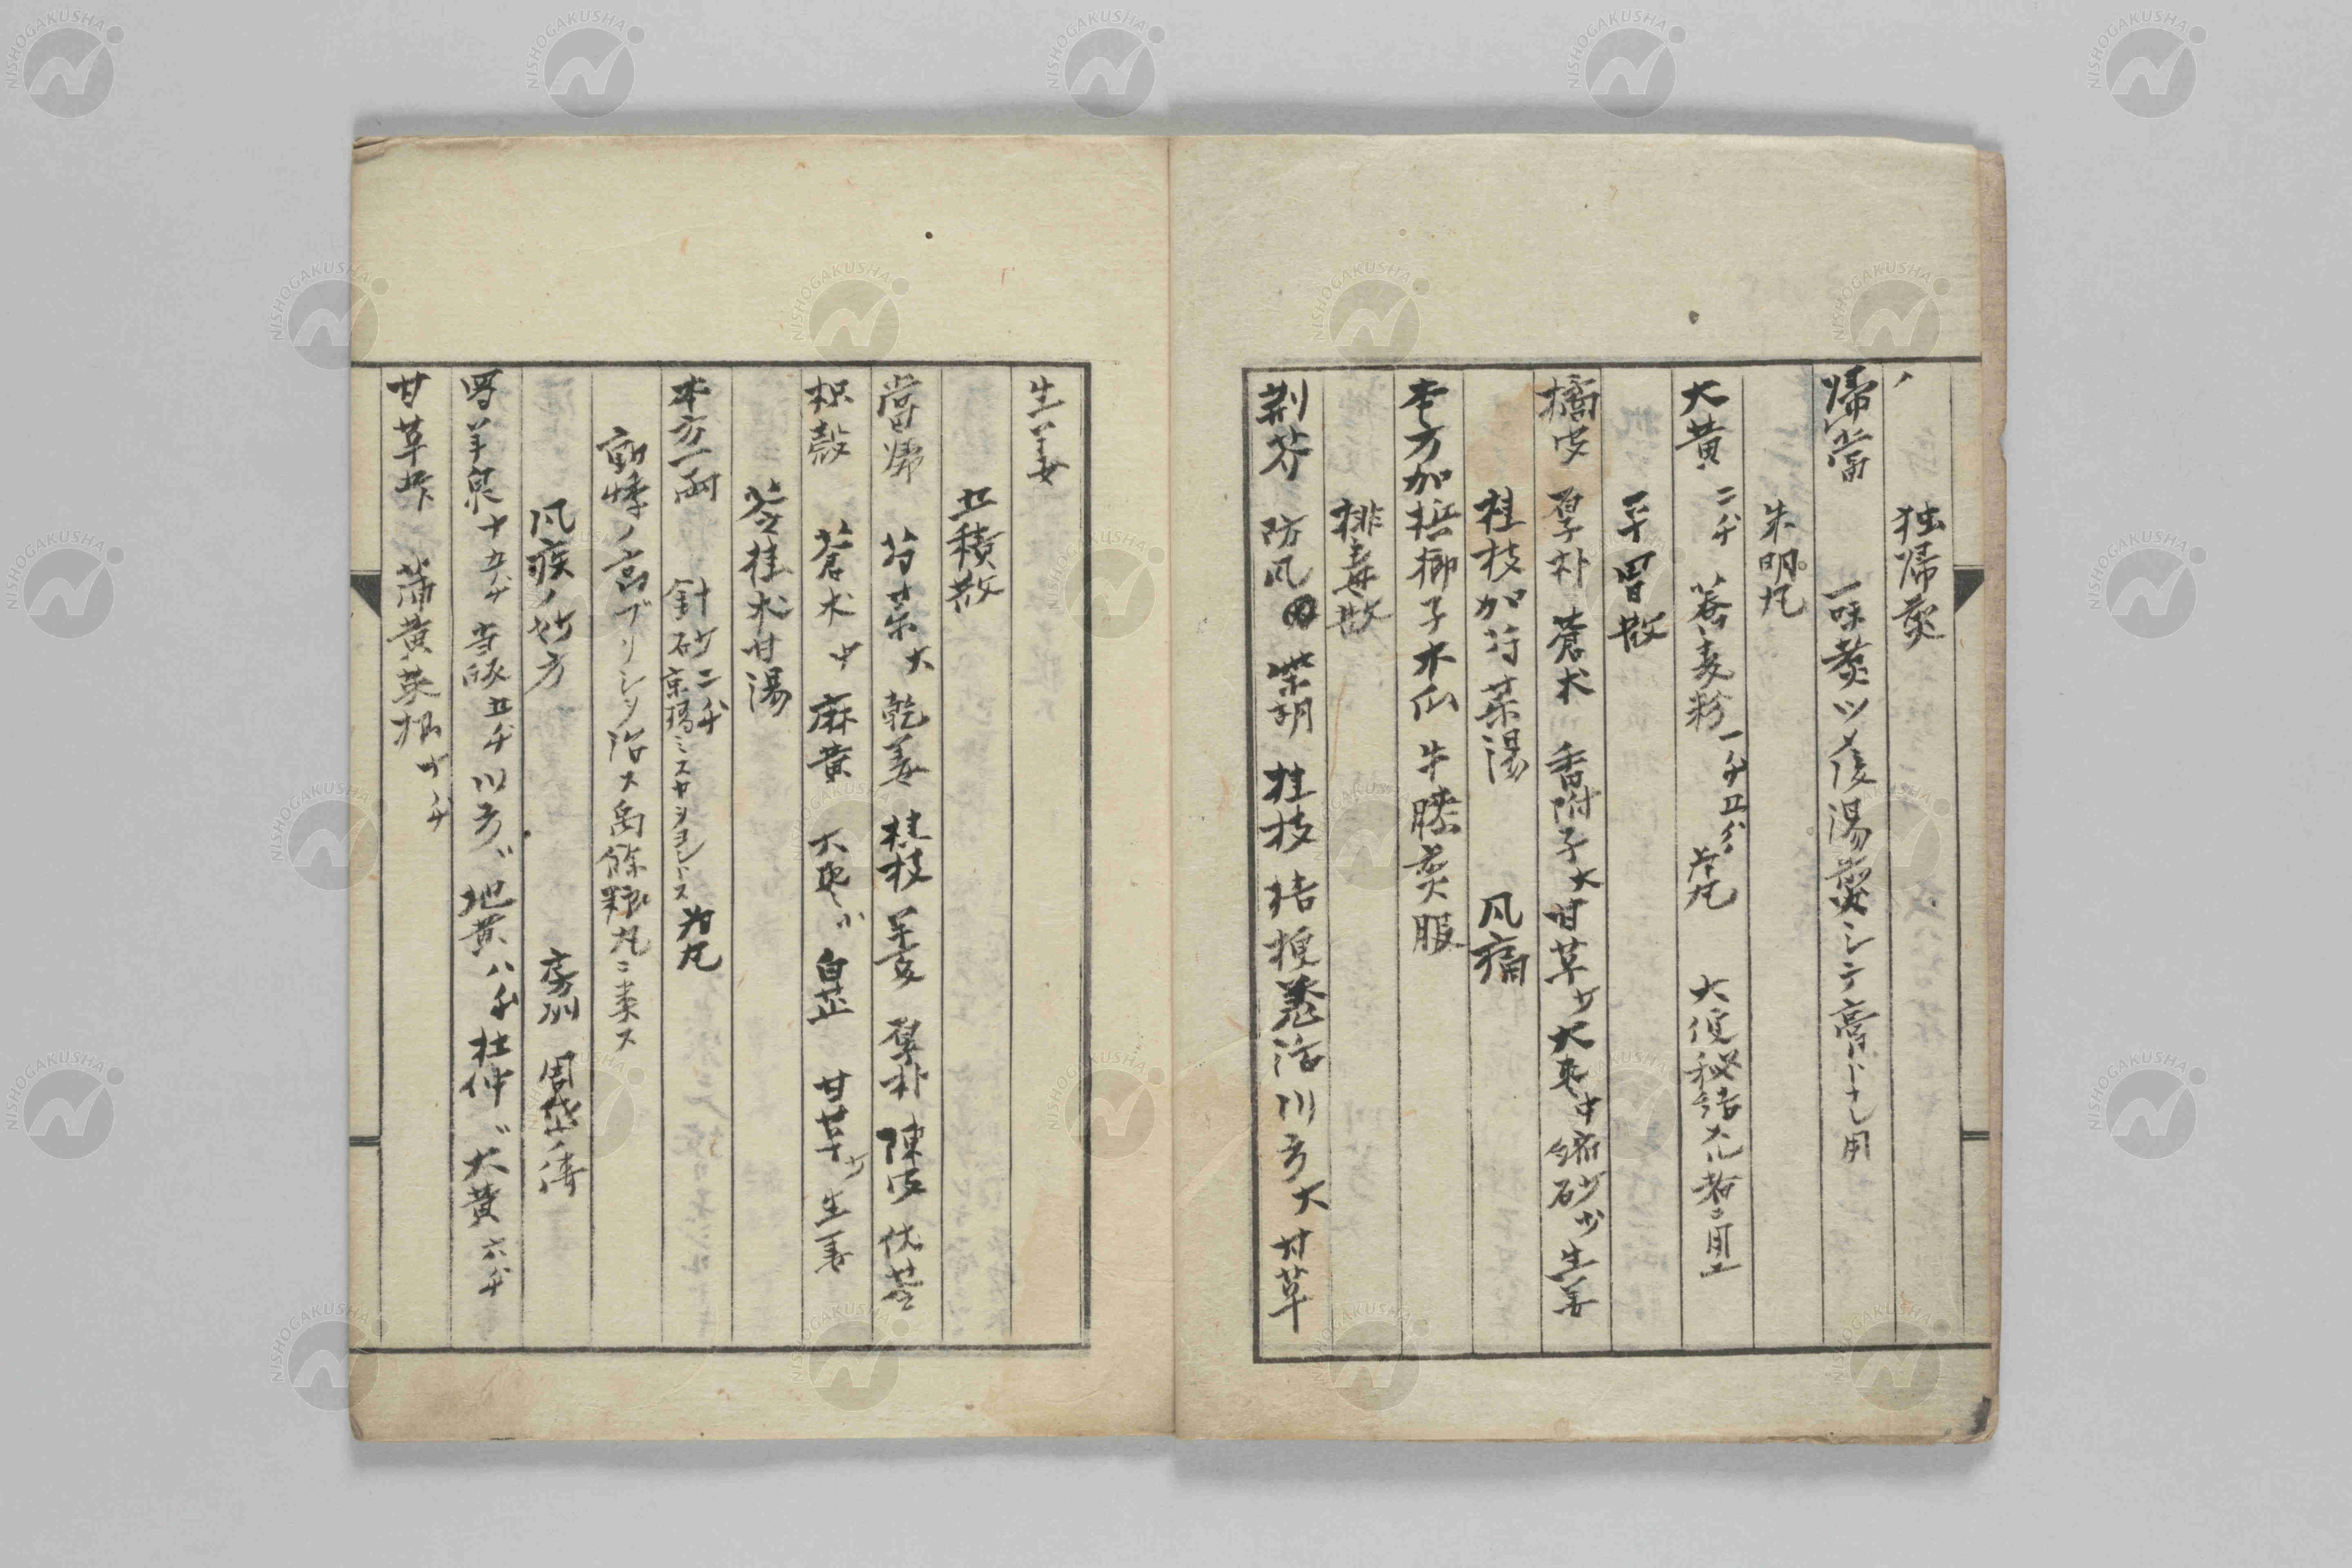 独帰煎
帰当 一味煎ツメ後湯煎シテ膏トナシ用
朱明丸
大黄 二戔 蕎麦粉 一戔五分 為丸 大便秘結スル者ニ用ユ
平胃散
橘皮 厚朴 蒼朮 香附子大 甘草少 大枣中 縮砂少 生姜
桂枝加苓朮湯 風痛
本方加梹榔子木瓜 牛膝煎服
排毒散
荊芥 防风 柴胡 桂枝 桔梗 羌活 川芎大 甘草
生姜
五積散
當帰 芍薬大 乾姜 桂枝 半夏 厚朴 陳皮 伏苓
枳殻 蒼朮中 麻黄 大枣〃 白芷 甘草少 生姜
苓桂朮甘湯
本方一両 針砂二戔 京橋ミスヤヲヨシトス 為丸
動悸ノ高ブリシヲ治ス禹余粮丸ニ類ス
风疾ノ妙方 房州 周岱ノ傳
胃羊泉十五戔 五戔 川芎〃 地黄八戔 杜仲〃 大黄六戔
甘草 蒲黄英根 戔
NISHOGAKUSHA